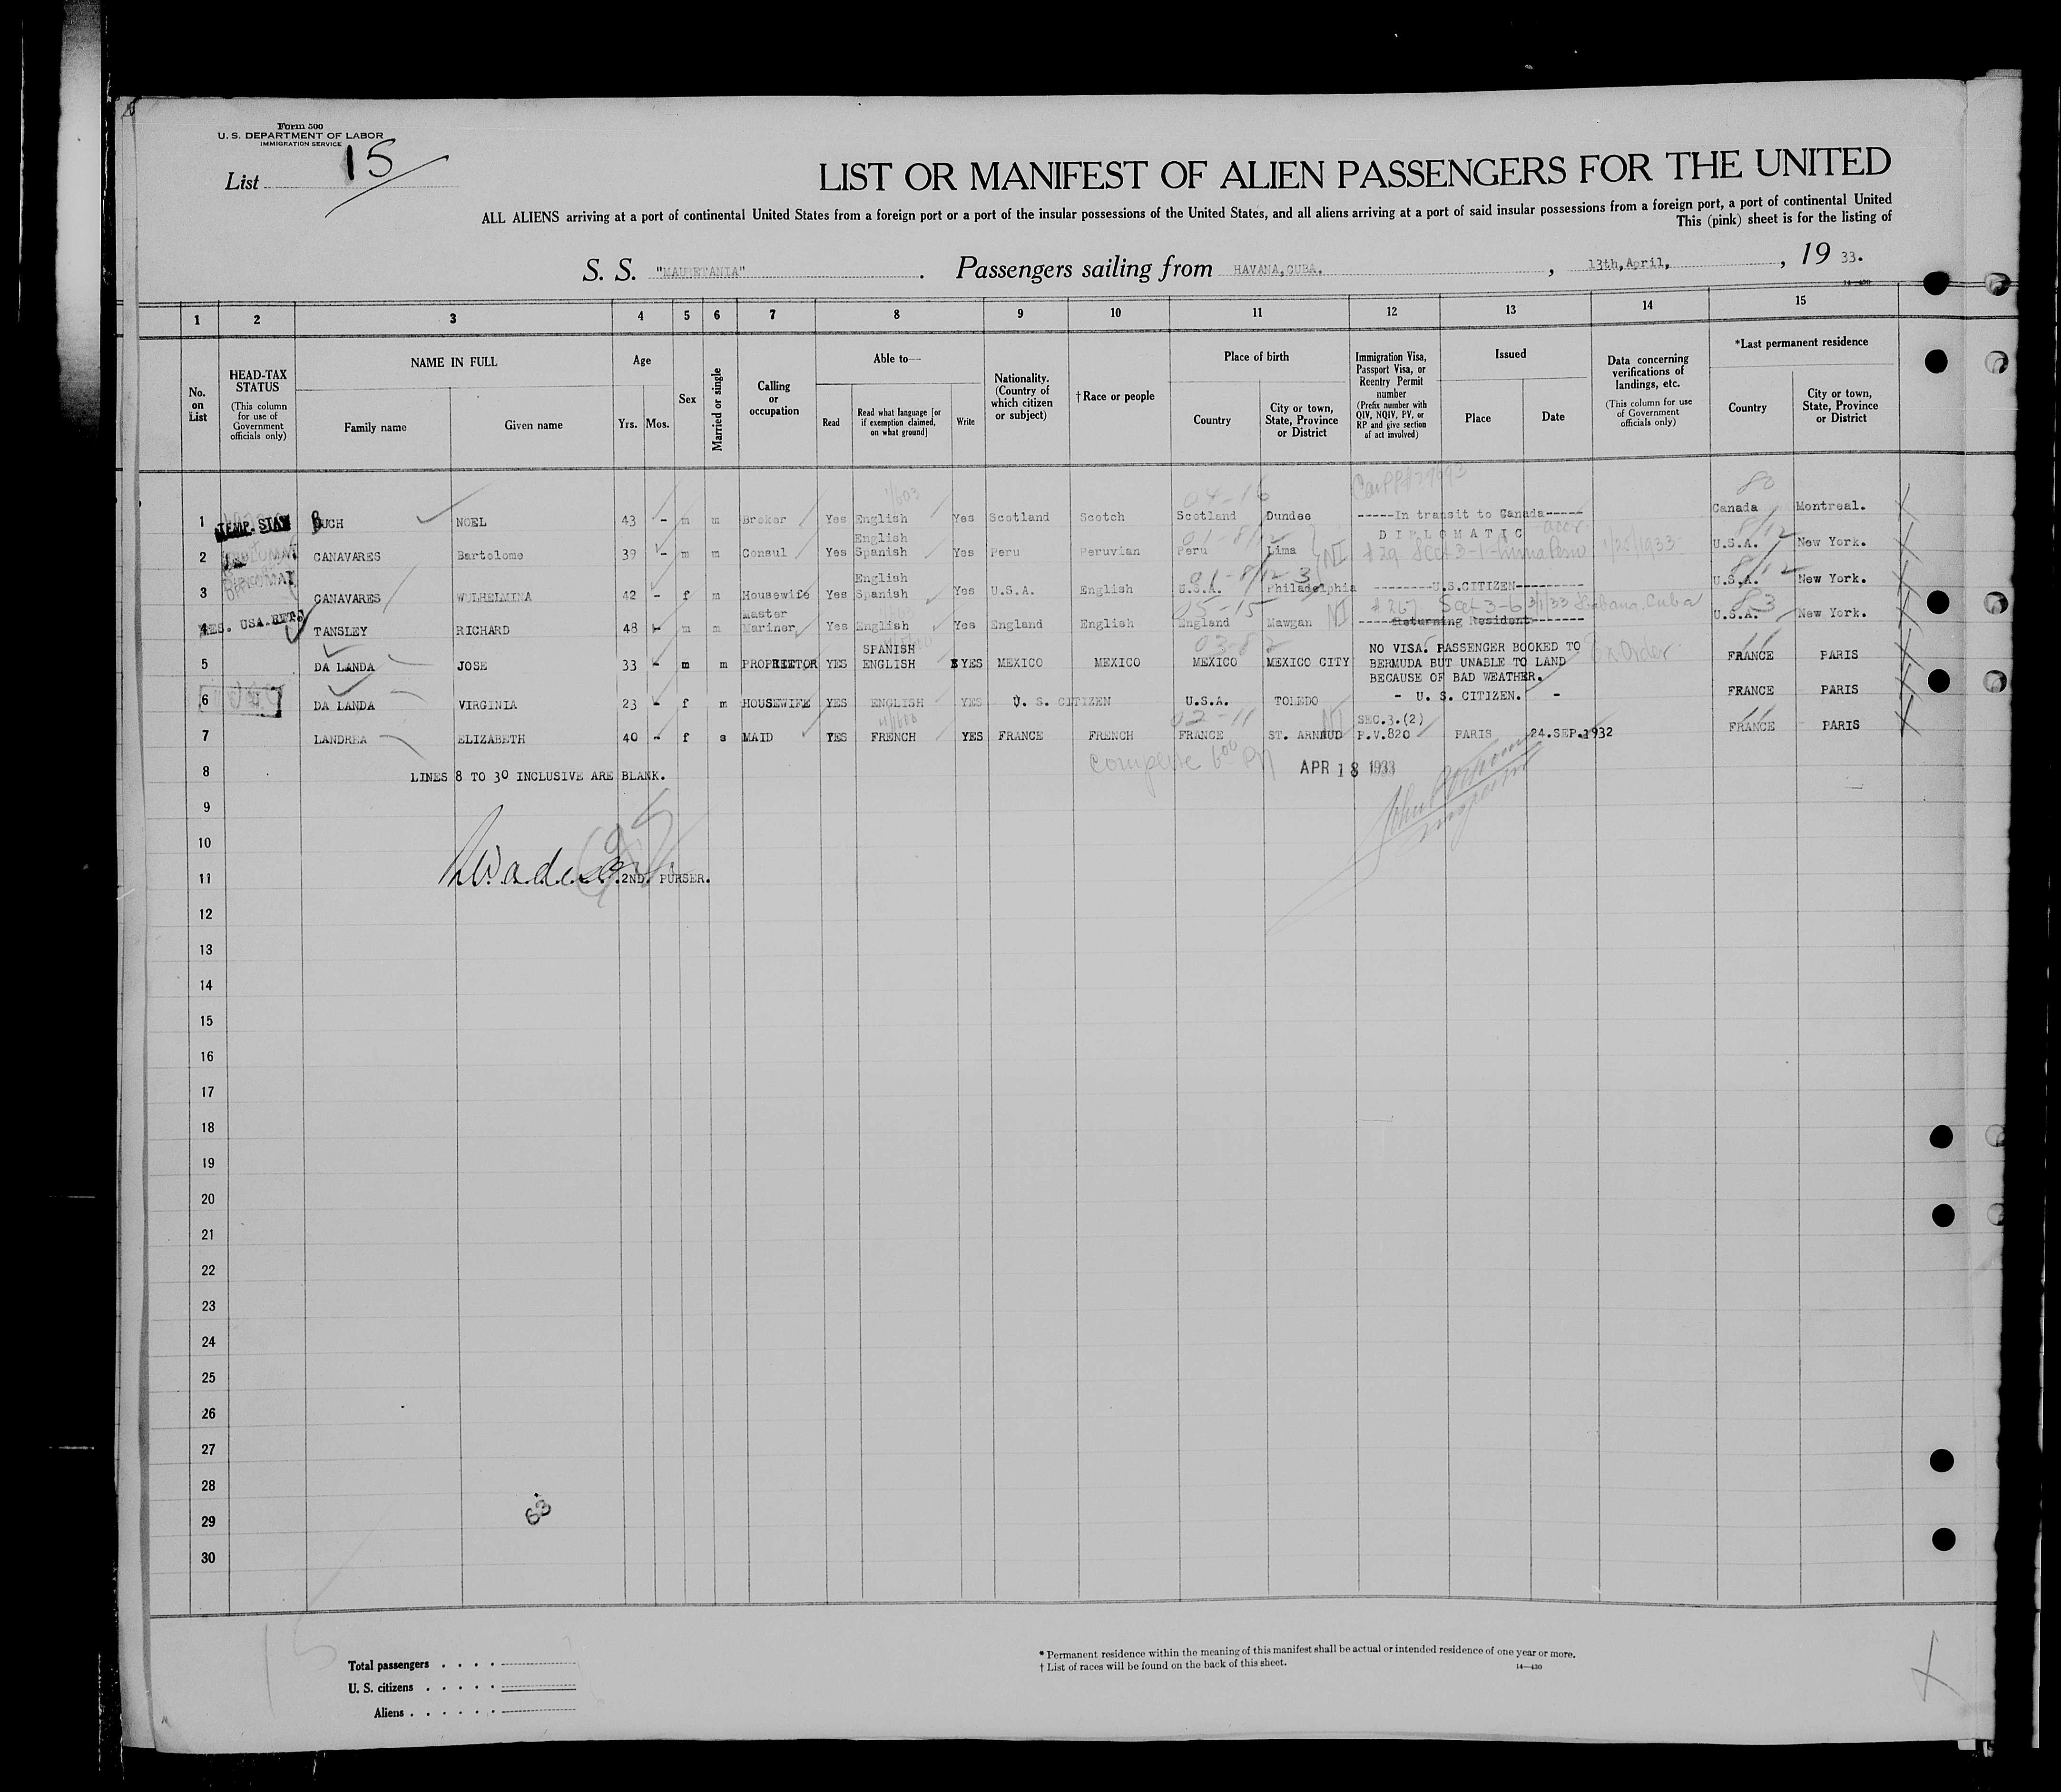 Form 500
U. S. DEPARTMENT OF LABOR
IMMIGRATION SERVICE
List 15
LIST OR MANIFEST OF ALIEN PASSENGERS FOR THE UNITED
ALL ALIENS arriving at a port of continental United States from a foreign port or a port of the insular possessions of the United States, and all aliens arriving at a port of said insular possessions from a foreign port, a port of continental United
This (pink) sheet is for the listing of
S. S. "MAURETANIA". Passengers sailing from HAVANA, CUBA. , 13th, April, , 19 33.
14-430
1 2 3 4 5 6 7 8 9 10 11 12 13 14 15
No. on List
HEAD-TAX STATUS (This column for use of Government officials only)
NAME IN FULL
Family name
Given name
Age
Yrs. Mos.
Sex
Married or single
Calling or occupation
Able to—
Read
Read what language [or if exemption claimed, on what ground]
Write
Nationality. (Country of which citizen or subject)
†Race or people
Place of birth
Country
City or town, State, Province or District
Immigration Visa, Passport Visa, or Reentry Permit number (Prefix number with QIV, NQIV, PV, or RP and give section of act involved)
Issued
Place
Date
Data concerning verifications of landings, etc. (This column for use of Government officials only)
*Last permanent residence
Country
City or town, State, Province or District
04-16 80
1 TEMP. STAY BUCH NOEL 43 - m m Broker Yes English Yes Scotland Scotch Scotland Dundee -----In transit to Canada----- Canada Montreal.
English 01-8/12 DIPLOMATIC 8/12
2 CANAVARES Bartolome 39 - m m Consul Yes Spanish Yes Peru Peruvian Peru Lima NI #29 Sect 3-1- Lima Peru U.S.A. New York.
English 01-8/12 3 8/12
3 CANAVARES WULHELMINA 42 - f m Housewife Yes Spanish Yes U.S.A. English U.S.A. Philadelphia --------U.S.CITIZEN--------- U.S.A. New York.
Master 05-15 NI #267 Sect 3-6 3/1/33 Habana, Cuba 83
4 RES. USA. RET. TANSLEY RICHARD 48 - m m Mariner Yes English Yes England English England Mawgan -----Returning Resident------- U.S.A. New York.
SPANISH 03-82 NO VISA. PASSENGER BOOKED TO 11
5 DA LANDA JOSE 33 - m m PROPRIETOR YES ENGLISH YES MEXICO MEXICO MEXICO MEXICO CITY BERMUDA BUT UNABLE TO LAND FRANCE PARIS
BECAUSE OF BAD WEATHER.
6 DA LANDA VIRGINIA 23 - f m HOUSEWIFE YES ENGLISH YES U. S. CITIZEN U.S.A. TOLEDO - U. S. CITIZEN. - FRANCE PARIS
02-11 NI SEC.3.(2) 11
7 LANDREA ELIZABETH 40 - f s MAID YES FRENCH YES FRANCE FRENCH FRANCE ST. ARNAUD P.V.820 PARIS 24.SEP.1932 FRANCE PARIS
8 LINES 8 TO 30 INCLUSIVE ARE BLANK. APR 18 1933
9
10
11 2ND. PURSER.
12
13
14
15
16
17
18
19
20
21
22
23
24
25
26
27
28
29 63
30
Total passengers . . . .
U. S. citizens . . . . .
Aliens . . . . . .
* Permanent residence within the meaning of this manifest shall be actual or intended residence of one year or more.
† List of races will be found on the back of this sheet.
14-430